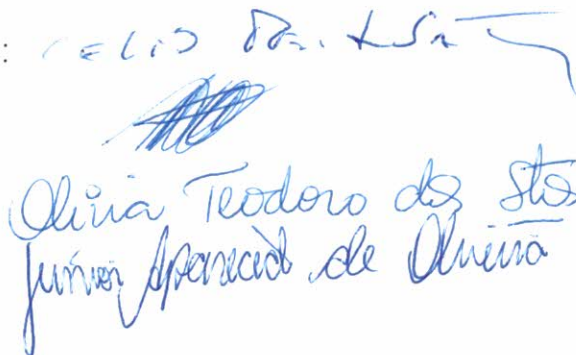 : Celio
Olivia Teodoro dos Stos
Junior Aparecido de Oliveira